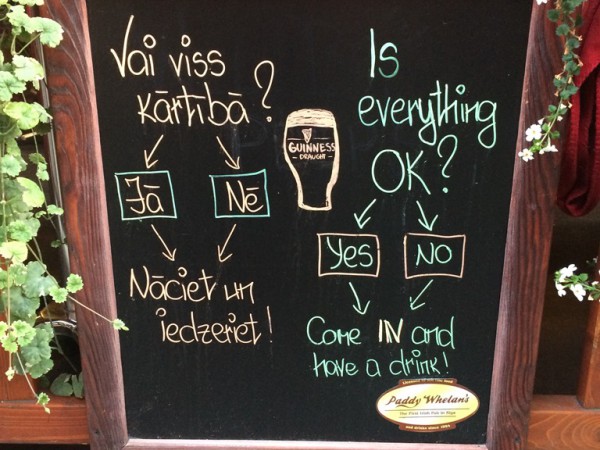 Vai viss
kārtībā?
Jā
Nē
Nāciet un
iedzeriet!
GUINNESS
DRAUGHT
Is
everything
OK?
Yes
NO
Come IN and
have a drink!
Paddy Whelan's